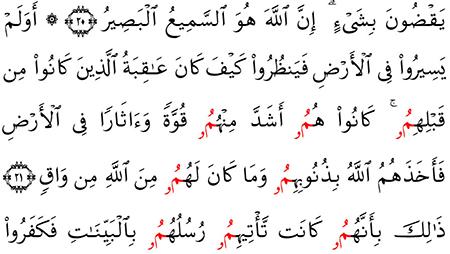 يَقْضُونَ بِشَىْءٍ ۗ إِنَّ ٱللَّهَ هُوَ ٱلسَّمِيعُ ٱلْبَصِيرُ ﴿٢٠﴾ ۞ أَوَلَمْ
يَسِيرُوا۟ فِى ٱلْأَرْضِ فَيَنظُرُوا۟ كَيْفَ كَانَ عَـٰقِبَةُ ٱلَّذِينَ كَانُوا۟ مِن
قَبْلِهِمُۥ ۚ كَانُوا۟ هُمُۥ أَشَدَّ مِنْهُمُۥ قُوَّةً وَءَاثَارًا فِى ٱلْأَرْضِ
فَأَخَذَهُمُ ٱللَّهُ بِذُنُوبِهِمُۥ وَمَا كَانَ لَهُمُۥ مِنَ ٱللَّهِ مِن وَاقٍ ﴿٢١﴾
ذَٰلِكَ بِأَنَّهُمُۥ كَانَت تَّأْتِيهِمُۥ رُسُلُهُمُۥ بِٱلْبَيِّنَـٰتِ فَكَفَرُوا۟